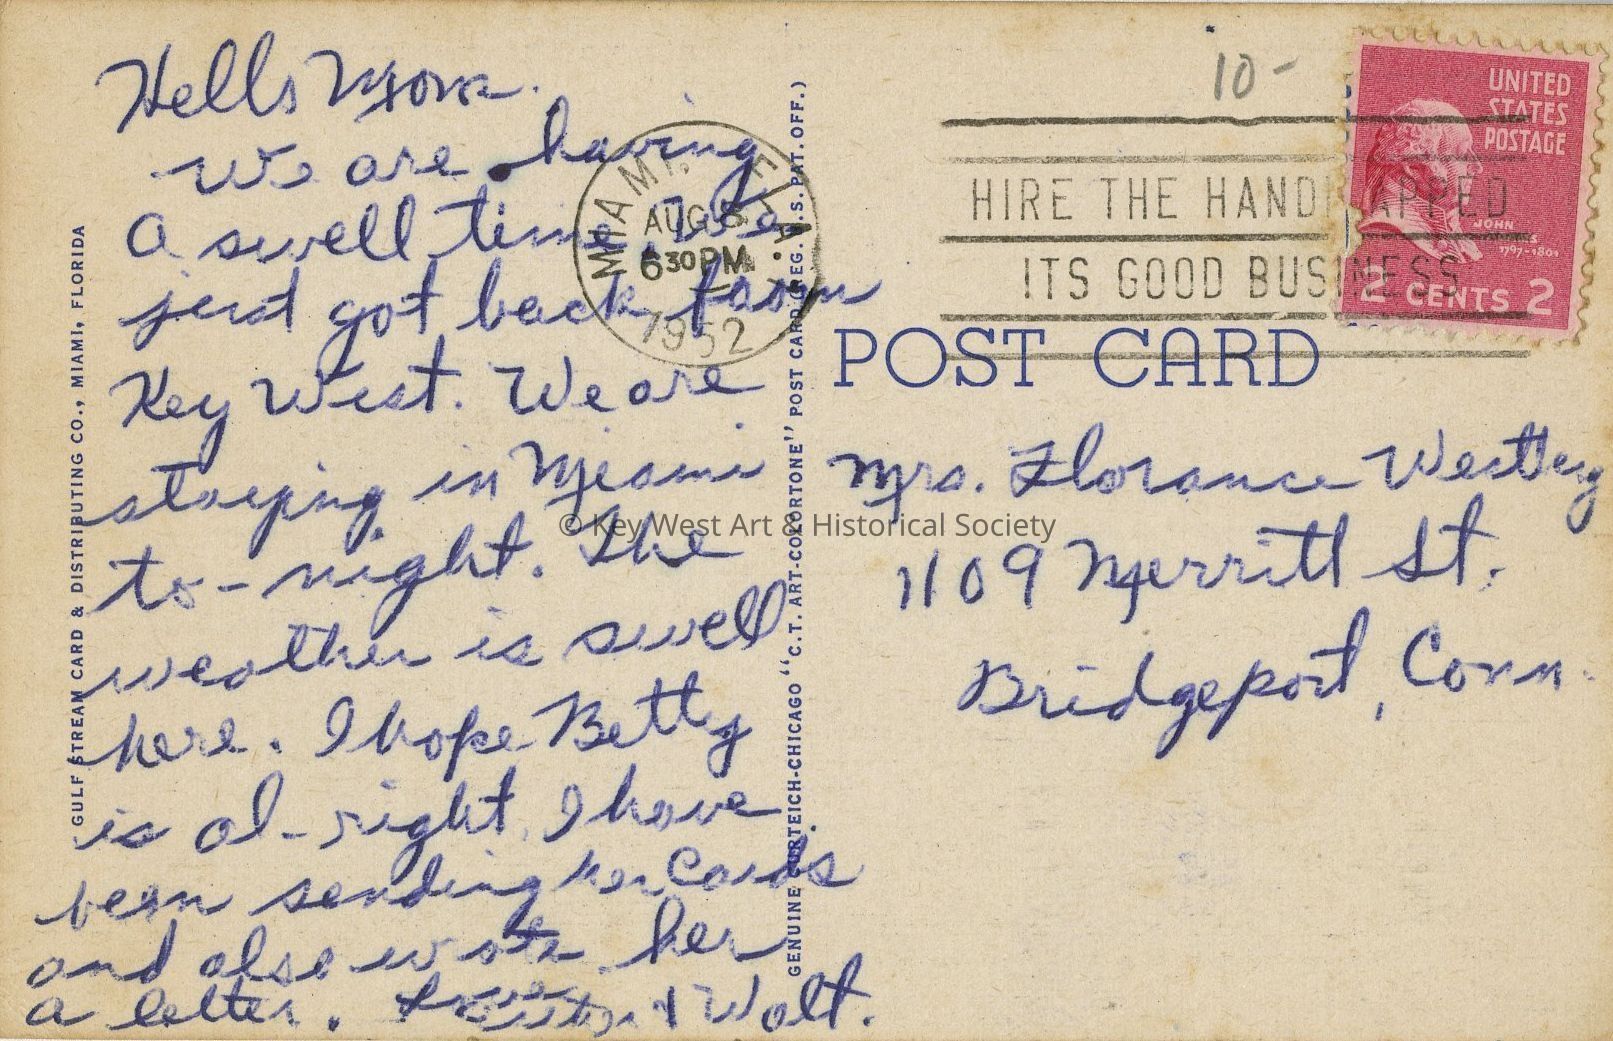 Hello Mom.
We are having
a swell time. We
just got back from
Key West. We are
staying in Miami
to-night. The
weather is swell
here. I hope Betty
is al-right. I have
been sending her Cards
and also wrote her
a letter. Love
& Walt.
MIAMI, FLA.
AUG 8
6 30 PM
1952
10-
HIRE THE HANDICAPPED
ITS GOOD BUSINESS
UNITED
STATES
POSTAGE
JOHN
ADAMS
1797-1801
2 CENTS 2
POST CARD
Mrs. Florance Westley
1109 Merritt St.
Bridgeport, Conn.
GULF STREAM CARD & DISTRIBUTING CO., MIAMI, FLORIDA
GENUINE CURTEICH-CHICAGO "C.T. ART-COLORTONE" POST CARD (REG. U.S. PAT. OFF.)
© Key West Art & Historical Society